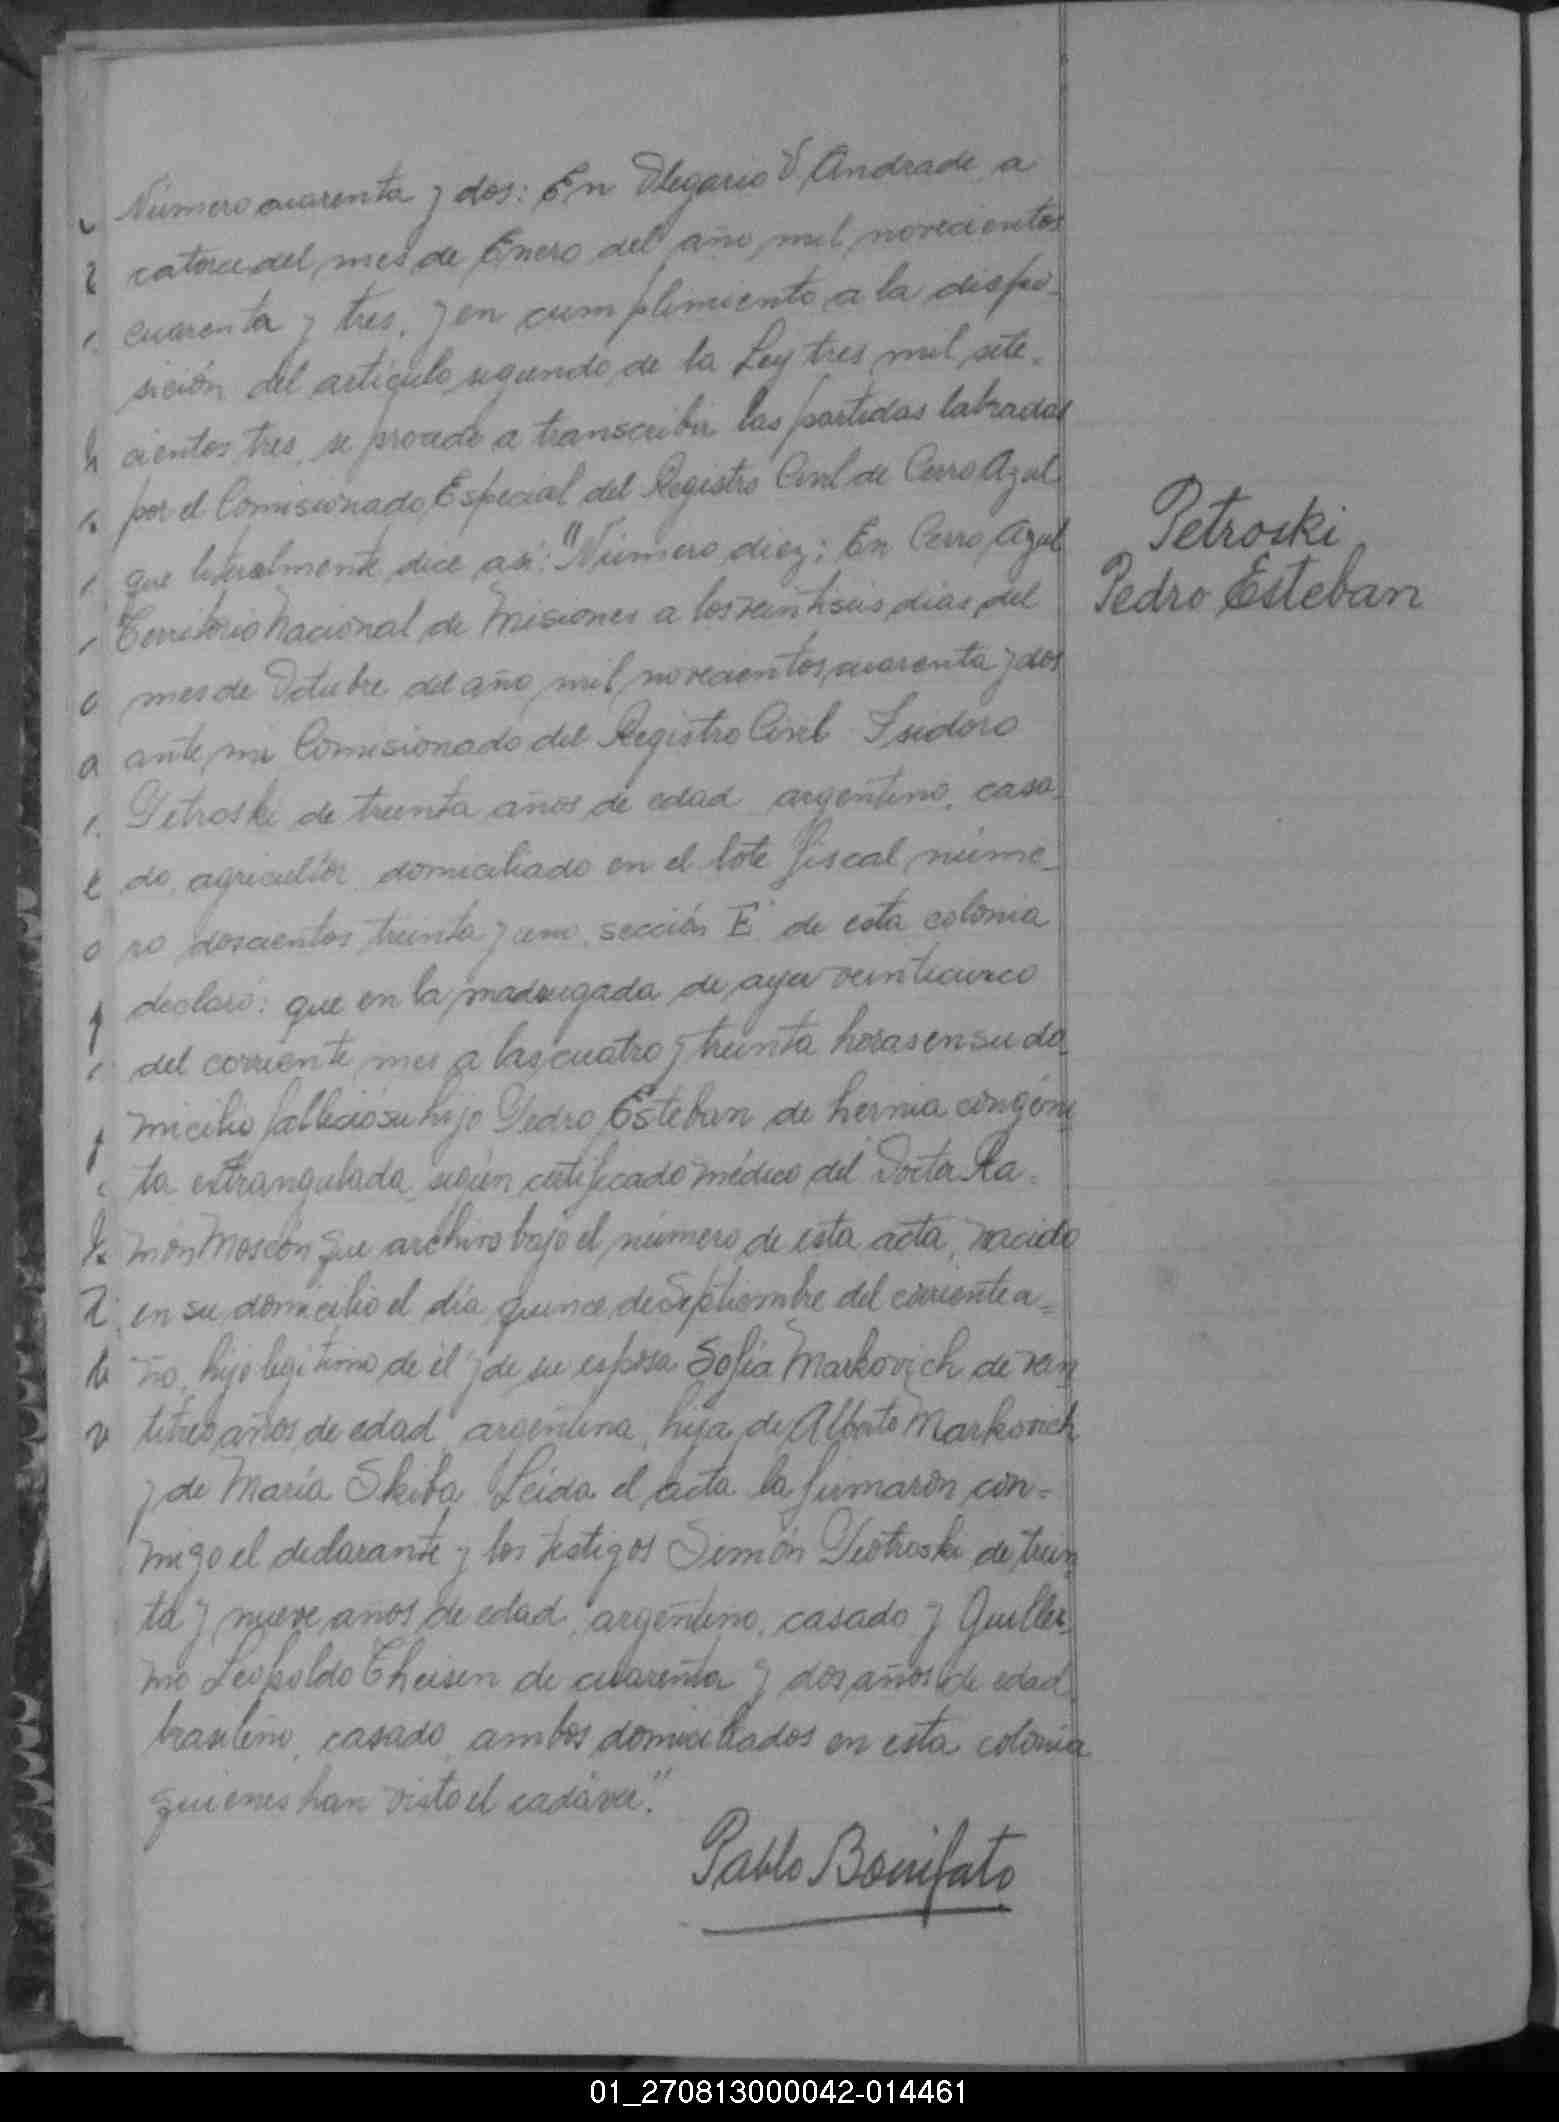 Número cuarenta y dos: En Olegario V. Andrade, a
catorce del mes de Enero del año mil novecientos
cuarenta y tres, y en cumplimiento a la dispo-
sición del artículo segundo de la Ley tres mil sete-
cientos tres, se procede a transcribir las partidas labradas
por el Comisionado Especial del Registro Civil de Cerro Azul
que literalmente dice así: "Número diez: En Cerro Azul
Territorio Nacional de Misiones a los veintiseis dias del
mes de Octubre del año mil novecientos cuarenta y dos
ante mi Comisionado del Registro Civil Isidoro
Petroski de treinta años de edad argentino, casa-
do, agricultor domiciliado en el lote fiscal núme-
ro doscientos treinta y uno, sección E de esta colonia
declaró: que en la madrugada de ayer veinticinco
del corriente mes a las cuatro y treinta horas en su do-
micilio falleció su hijo Pedro Esteban de hernia congéni
ta estrangulada según certificado médico del Doctor Ra-
món Moscón que archivo bajo el número de esta acta, nacido
en su domicilio el día quince de Septiembre del corriente a-
ño, hijo legítimo de él y de su esposa Sofía Markovich de vein
titres años de edad argentina, hija de Alberto Markovich
y de María Skiba Leida el acta la firmaron con-
migo el declarante y los testigos Simón Piotroski de trein
ta y nueve años de edad, argentino, casado y Guiller-
mo Leopoldo Theisen de cuarenta y dos años de edad
brasileño, casado, ambos domiciliados en esta colonia
quienes han visto el cadáver".
Pablo Bonifato
Petroski
Pedro Esteban
01_270813000042-014461